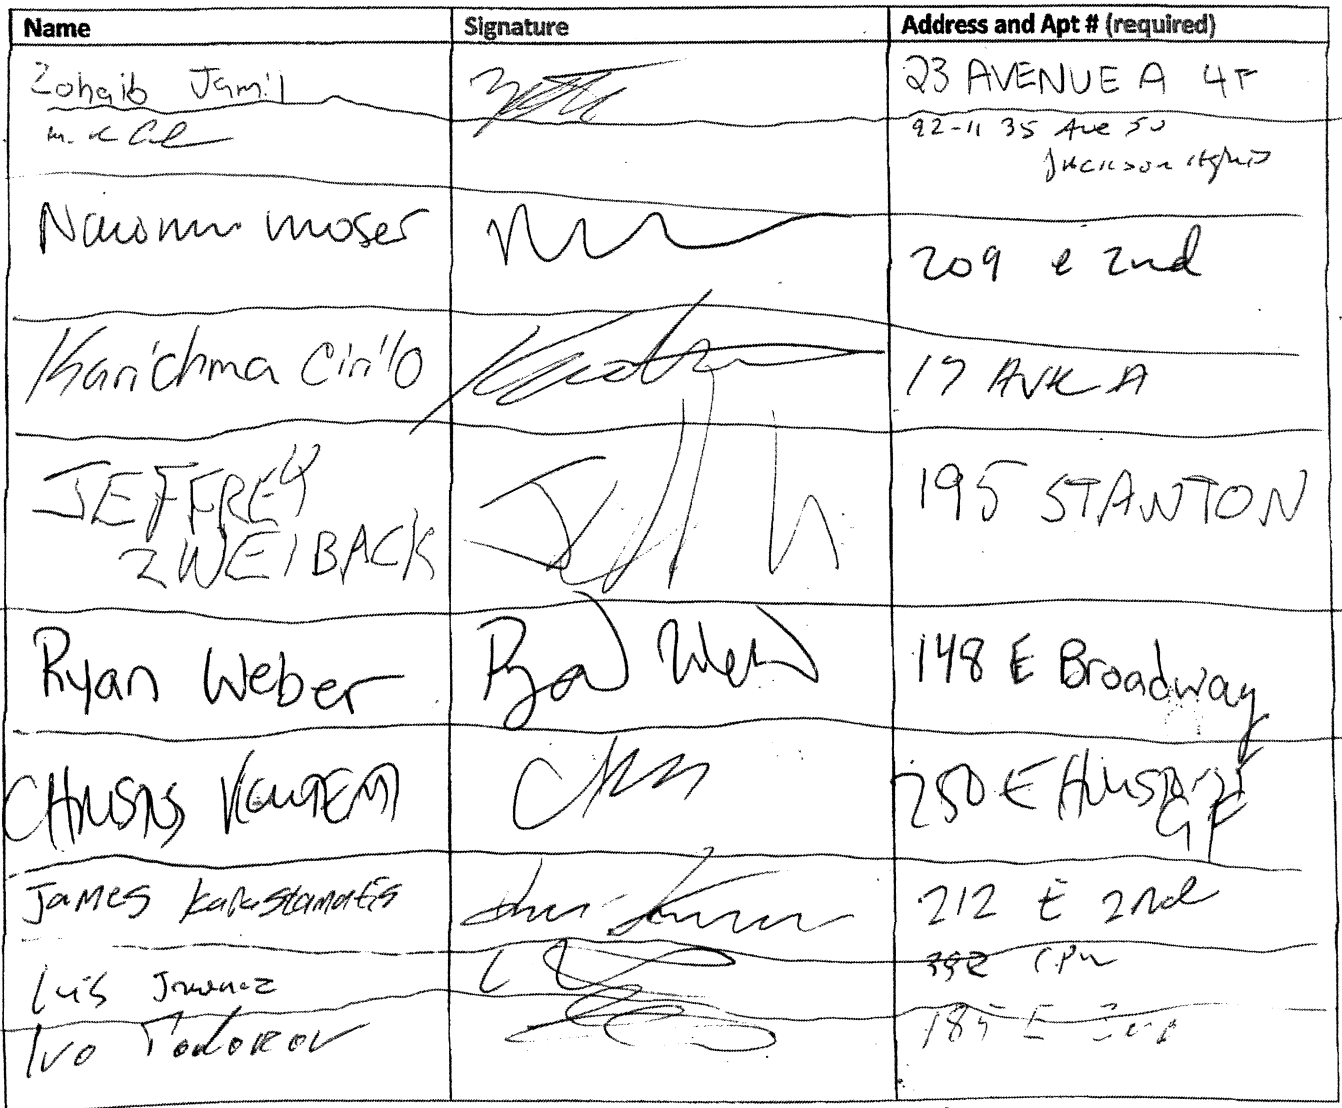 Name Signature Address and Apt # (required)
Zohaib Jamil 23 AVENUE A 4F
92-11 35 Ave
Jackson Heights
Naiomi Moser 209 e 2nd
Karichma Cirilo 17 AVE A
JEFFREY 195 STANTON
ZWEIBACK
Ryan Weber Ryan Weber 148 E Broadway
250 E
James Karastamatis 212 E 2nd
Luis Jimenez 392 CPW
Ivo Todorov 185 E